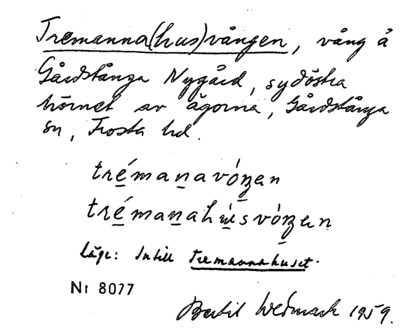 Tremanna(hus)vången, vång å
Gårdstånga Nygård, sydöstra
hörnet av ägorna, Gårdstånga
sn, Frosta hd.
trémanavóŋen
trémanahu̇svóŋen
Läge: Intill Tremannahuset.
Nr 8077
Bertil Wedmark 1959.